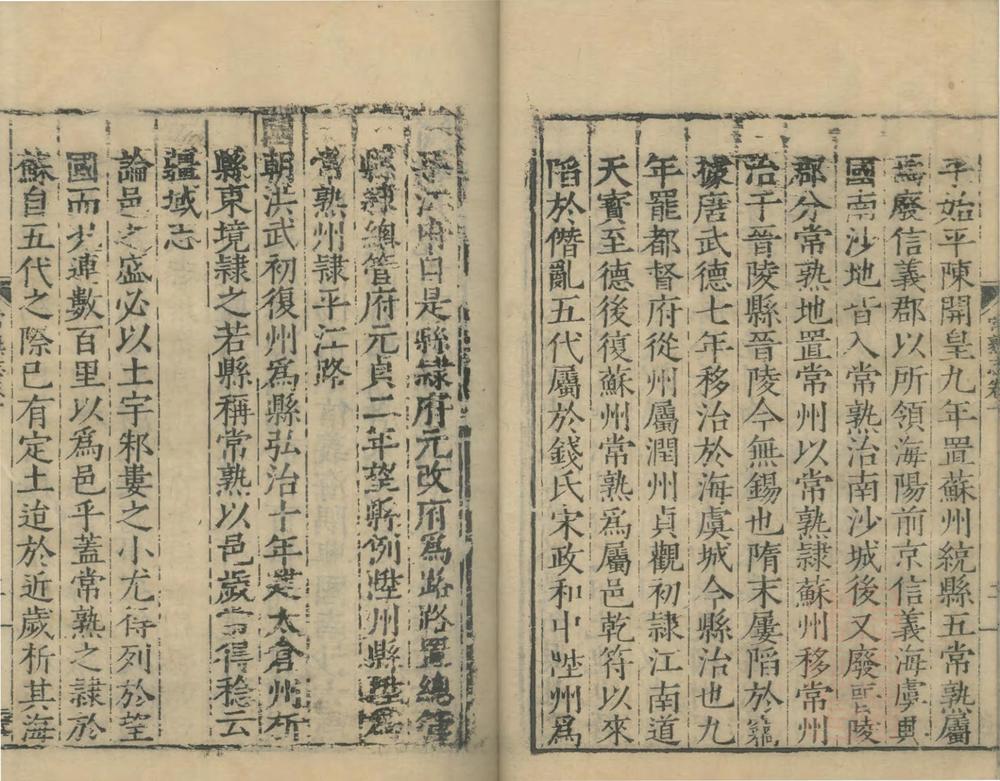 平始平陳開皇九年置蘇州統縣五常熟屬
焉廢信義郡以所領海陽前京信義海虞興
國南沙地皆入常熟治南沙城後又廢晉陵
郡分常熟地置常州以常熟隸蘇州移常州
治于晉陵縣晉陵今無錫也隋末屢陷於竊
據唐武德七年移治於海虞城今縣治也九
年罷都督府從州屬潤州貞觀初隸江南道
天寳至德後復蘇州常熟爲屬邑乾符以來
陷於僭亂五代屬於錢氏宋政和中陞州爲
平江府自是縣隸府元改府爲路路置總管
縣隸總管府元貞二年望縣例陞州縣陞爲
常熟州隸平江路
國朝洪武初復州爲縣弘治十年建太倉州析
縣東境隸之若縣稱常熟以邑歲常得稔云
疆域志
論邑之盛必以土宇邾婁之小尤得列於望
國而北連數百里以爲邑乎蓋常熟之隸於
蘇自五代之際已有定土迨於近歲析其海